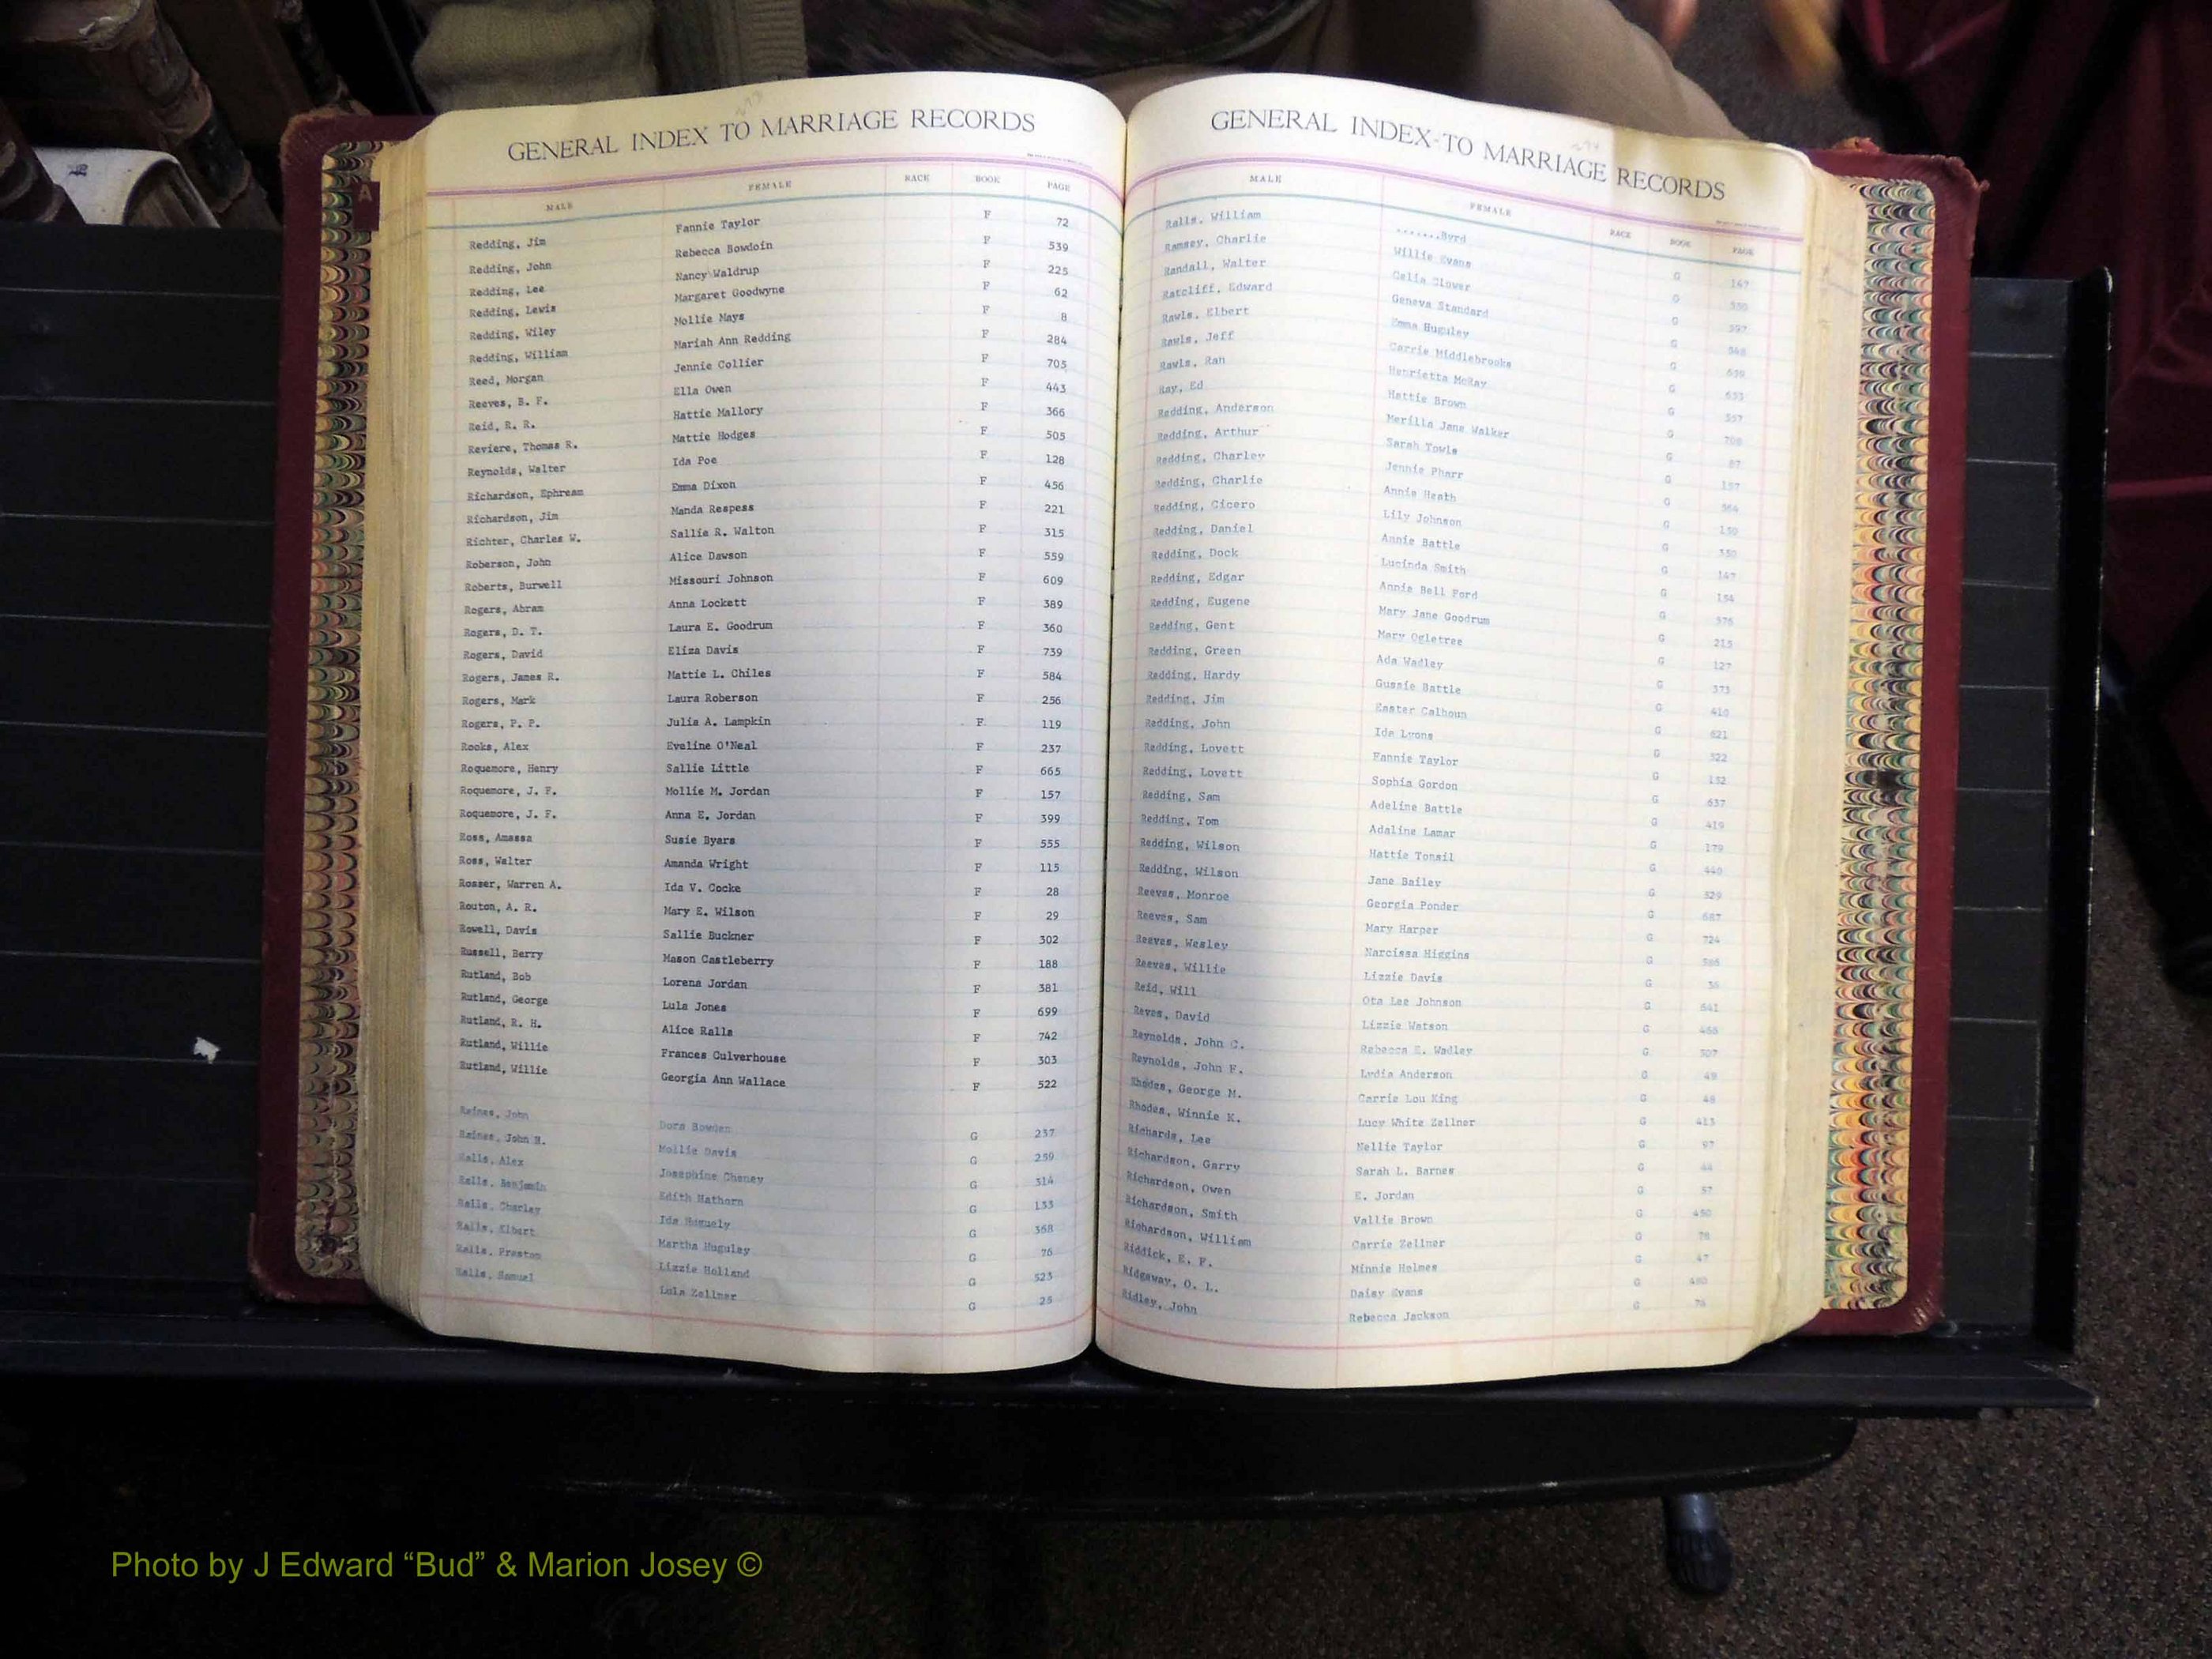 GENERAL INDEX TO MARRIAGE RECORDS
MALE FEMALE RACE BOOK PAGE
Redding, Jim Fannie Taylor F 72
Redding, John Rebecca Bowdoin F 539
Redding, Lee Nancy Waldrup F 225
Redding, Lewis Margaret Goodwyne F 62
Redding, Wiley Mollie Mays F 8
Redding, William Mariah Ann Redding F 284
Reed, Morgan Jennie Collier F 705
Reeves, B. F. Ella Owen F 443
Reid, R. R. Hattie Mallory F 366
Reviere, Thomas R. Mattie Hodges F 505
Reynolds, Walter Ida Poe F 128
Richardson, Ephream Emma Dixon F 456
Richardson, Jim Manda Respess F 221
Richter, Charles W. Sallie R. Walton F 315
Roberson, John Alice Dawson F 559
Roberts, Burwell Missouri Johnson F 609
Rogers, Abram Anna Lockett F 389
Rogers, D. T. Laura E. Goodrum F 360
Rogers, David Eliza Davis F 739
Rogers, James R. Mattie L. Chiles F 584
Rogers, Mark Laura Roberson F 256
Rogers, P. P. Julia A. Lampkin F 119
Rooks, Alex Eveline O'Neal F 237
Roquemore, Henry Sallie Little F 665
Roquemore, J. F. Mollie M. Jordan F 157
Roquemore, J. F. Anna E. Jordan F 399
Ross, Amassa Susie Byars F 555
Ross, Walter Amanda Wright F 115
Rosser, Warren A. Ida V. Cocke F 28
Routon, A. R. Mary E. Wilson F 29
Rowell, Davis Sallie Buckner F 302
Russell, Berry Mason Castleberry F 188
Rutland, Bob Lorena Jordan F 381
Rutland, George Lula Jones F 699
Rutland, R. H. Alice Ralls F 742
Rutland, Willie Frances Culverhouse F 303
Rutland, Willie Georgia Ann Wallace F 522
Raines, John Dora Bowden G 237
Raines, John H. Mollie Davis G 259
Ralls, Alex Josephine Cheney G 314
Ralls, Benjamin Edith Hathorn G 133
Ralls, Charley Ida Huguely G 368
Ralls, Elbert Martha Huguley G 76
Ralls, Preston Lizzie Holland G 523
Ralls, Samuel Lula Zellner G 25
GENERAL INDEX TO MARRIAGE RECORDS
MALE FEMALE RACE BOOK PAGE
Ralls, William .......Byrd G 167
Ramsey, Charlie Willie Evans G 550
Randall, Walter Celia Clower G 597
Ratcliff, Edward Geneva Standard G 548
Rawls, Elbert Emma Huguley G
Rawls, Jeff Carrie Middlebrooks G 653
Rawls, Rah Henrietta McRay G 557
Ray, Ed Hattie Brown G 708
Redding, Anderson Merilla Jane Walker G 87
Redding, Arthur Sarah Towls G 157
Redding, Charley Jennie Pharr G 564
Redding, Charlie Annie Heath G 150
Redding, Cicero Lily Johnson G 350
Redding, Daniel Annie Battle G 147
Redding, Dock Lucinda Smith G 154
Redding, Edgar Annie Bell Ford G 576
Redding, Eugene Mary Jane Goodrum G 215
Redding, Gent Mary Ogletree G 127
Redding, Green Ada Wadley G 373
Redding, Hardy Gussie Battle G 410
Redding, Jim Easter Calhoun G 621
Redding, John Ida Lyons G 522
Redding, Lovett Fannie Taylor G 132
Redding, Lovett Sophia Gordon G 637
Redding, Sam Adeline Battle G 419
Redding, Tom Adaline Lamar G 179
Redding, Wilson Hattie Tonsil G 440
Redding, Wilson Jane Bailey G 529
Reeves, Monroe Georgia Ponder G 687
Reeves, Sam Mary Harper G 724
Reeves, Wesley Narcissa Higgins G 586
Reeves, Willie Lizzie Davis G 36
Reid, Will Ota Lee Johnson G 641
Reves, David Lizzie Watson G 466
Reynolds, John C. Rebecca E. Wadley G 507
Reynolds, John F. Lydia Anderson G 49
Rhodes, George M. Carrie Lou King G 48
Rhodes, Winnie K. Lucy White Zellner G 413
Richards, Lee Nellie Taylor G 97
Richardson, Garry Sarah L. Barnes G 44
Richardson, Owen E. Jordan G 57
Richardson, Smith Vallie Brown G 450
Richardson, William Carrie Zellner G 78
Riddick, E. F. Minnie Holmes G 47
Ridgeway, O. L. Daisy Evans G 480
Ridley, John Rebecca Jackson G 76
Photo by J Edward “Bud” & Marion Josey ©